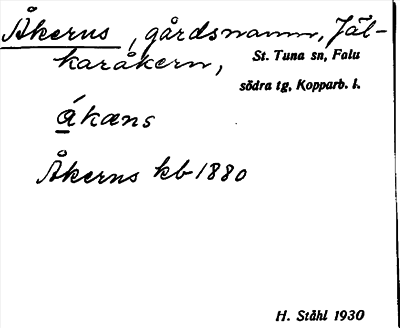 Åkerns, gårdsnamn, Jäl-
karåkern, St. Tuna sn, Falu
södra tg, Kopparb. l.
ákæns
Åkerns kb 1880
H. Ståhl 1930